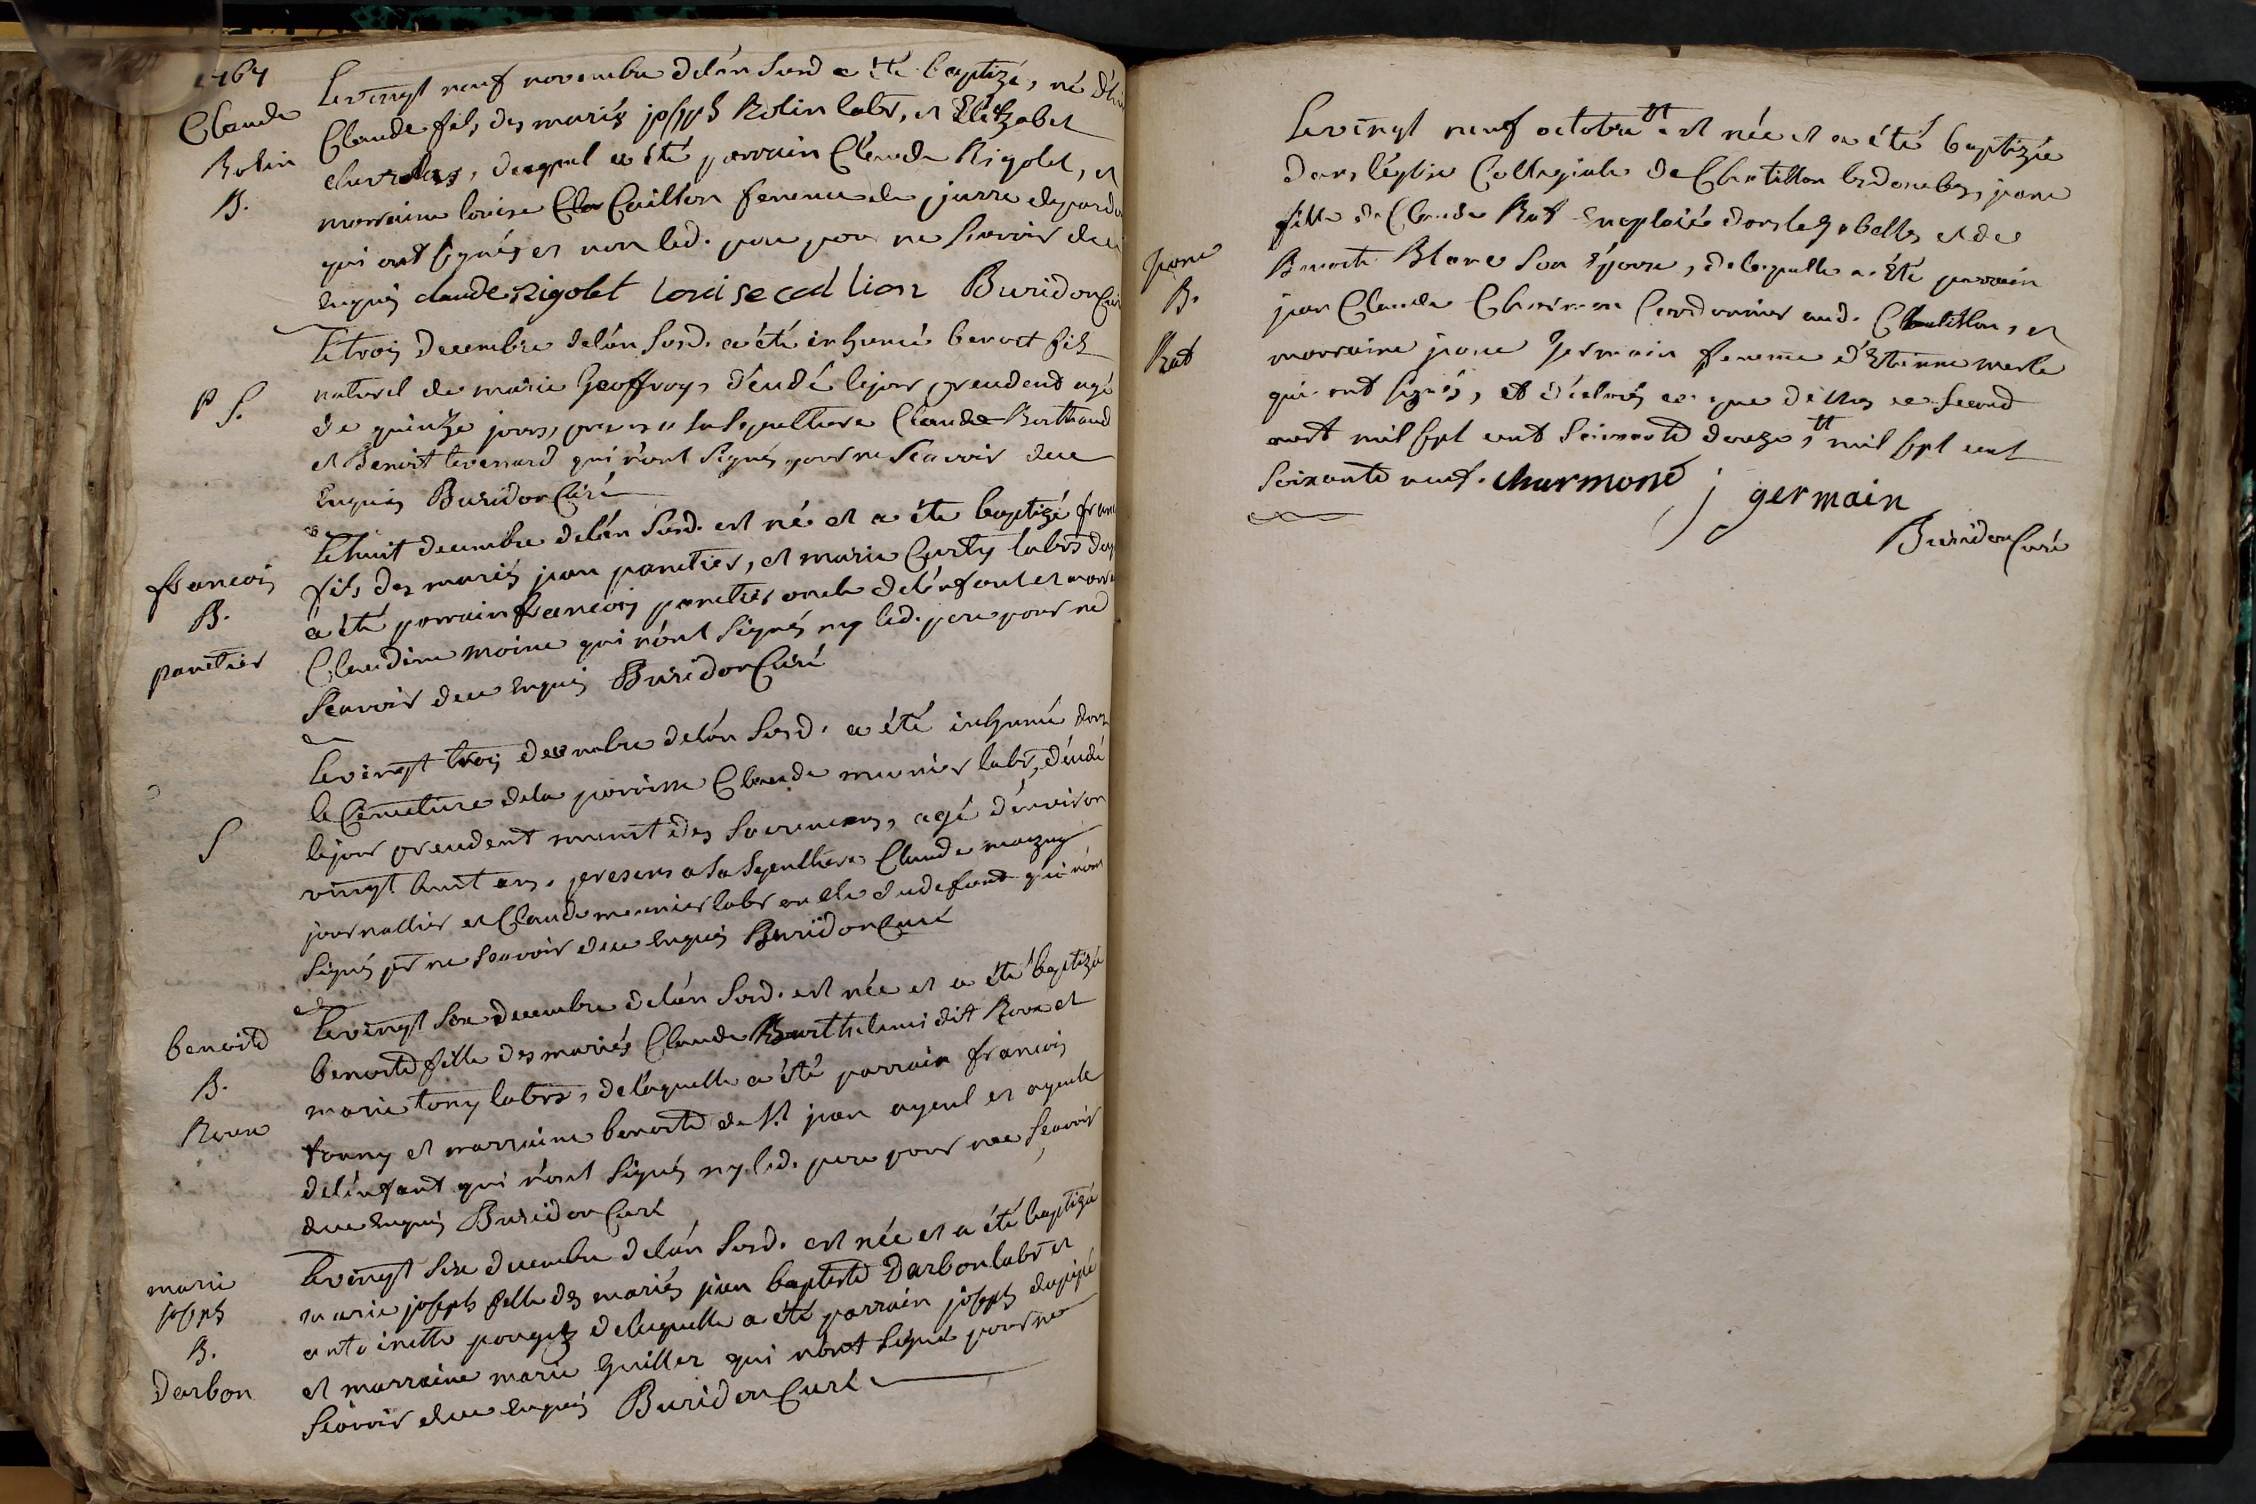 1767
Claude
Rolin
B.
Le vingt neuf novembre de l'an susd a été baptizé, né d'hi
Claude fils des mariés joseph Rolin labr, et Elizabet
duquel a été parrain Claude Rigolet, et
marraine louise Caillon femme de
qui ont signés et non led. pere pour ne scavoir de ce
enquis claude Rigolet Loui se cal lion Buridon Curé
P S.
Le trois decembre de l'an susd. a été inhumé benoit fils
naturel de marie Geoffroy, décédé le jour precedent agé
de quinze jours, presens a sa sepulture Claude Berthaud
et Benoit qui n'ont signés pour ne scavoir de ce
enquis Buridon Curé
francois
B.
panetier
Le huit decembre de l'an susd. est né et a été baptizé fran
fils des mariés jean panetier, et marie Curty labrs du
a été parrain francois panetier oncle de l'enfant et marr
Claudine moine qui n'ont signés ny led. pere pour ne
scavoir de ce enquis Buridon Curé
S
Le vingt trois decembre de l'an susd. a été inhumé dans
le Cimetiere de la parroisse Claude meunier labr, décédé
le jour precedent muni des sacremens, agé d'environ
vingt huit ans, presens a sa sepulture Claude mazuy
journallier et Claude meunier labr oncle du defunt qui n'ont
signés pr ne scavoir de ce enquis Buridon Curé
benoite
B.
Roux
Le vingt six decembre de l'an susd. est née et a été baptizée
benoite fille des mariés Claude Barthelemi dit Roux et
marie tony labrs, de laquelle a été parrain francois
tonny et marraine benoite de St jean ayeul et ayeule
de l'enfant qui n'ont signés ny led. pere pour ne scavoir
de ce enquis Buridon Curé
marie
joseph
B.
Darbon
Le vingt six decembre de l'an susd. est née et a été baptizée
marie joseph fille des mariés jean baptiste Darbon labr et
antoinette pouget de laquelle a été parrain joseph dupupé
et marraine marie Guiller qui n'ont signé pour ne
scavoir de ce enquis Buridon Curé
jane
B.
Rat
Le vingt neuf octobre tt est née et a été baptizée
dans l'églisse Collegiale de Chatillon les dombes, jane
fille de Claude Rat emploié dans les gabelles et de
Benoite Blanc son épouse, de laquelle a été parrain
jean Claude Charmone Cordonnier aud. Chatillon, et
marraine jane Germain femme d'Etienne merle
qui ont signés, et d'elivrés ce que dessus ce second
aout mil sept cent soixante douze, tt mil sept cent
soixante neuf. charmone j germain
Buridon Curé